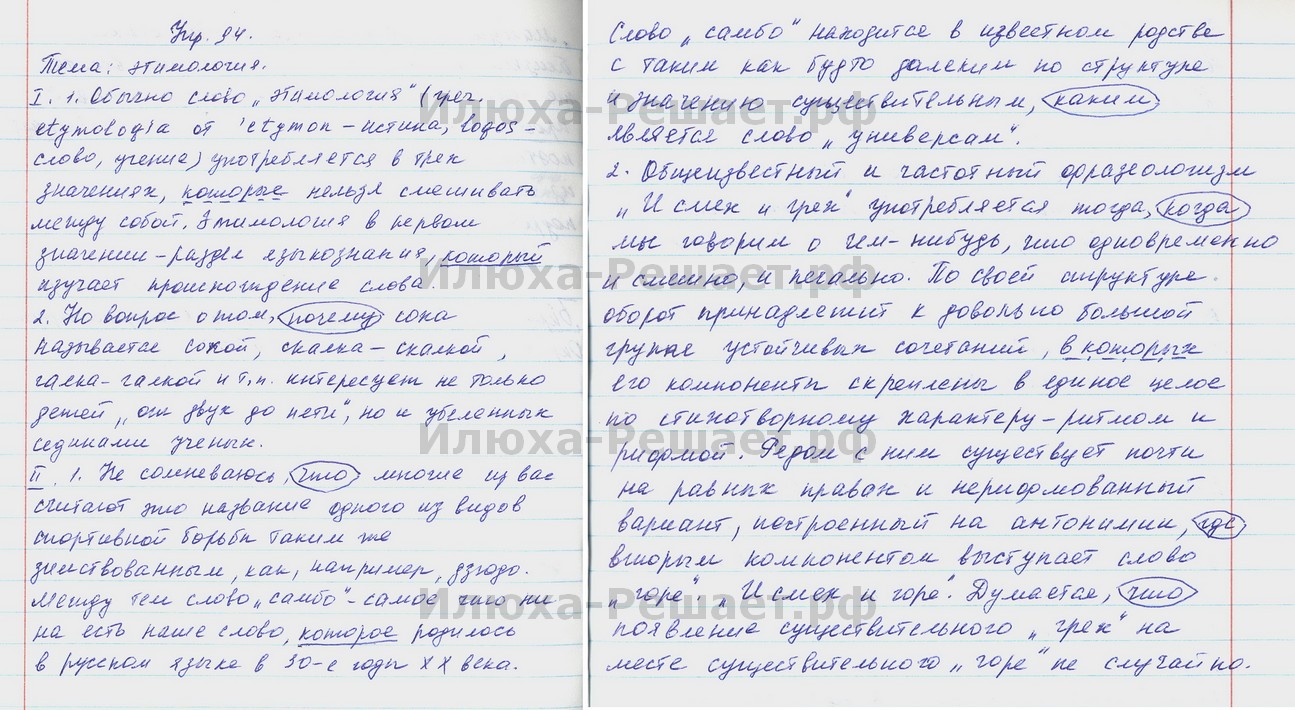 Упр. 94.
Тема: этимология.
I. 1. Обычно слово „этимология" (греч.
etymologia от 'etymon – истина, logos –
слово, учение) употребляется в трех
значениях, которые нельзя смешивать
между собой. Этимология в первом
значении – раздел языкознания, который
изучает происхождение слова.
2. Но вопрос о том, почему соха
называется сохой, скалка – скалкой,
галка – галкой и т.п. интересует не только
детей „от двух до пяти", но и убеленных
сединами ученых.
II. 1. Не сомневаюсь, что многие из вас
считают это название одного из видов
спортивной борьбы таким же
заимствованным, как, например, дзюдо.
Между тем слово „самбо" – самое что ни
на есть наше слово, которое родилось
в русском языке в 30-е годы XX века.
Слово „самбо" находится в известном родстве
с таким как будто далеким по структуре
и значению существительным, каким
является слово „универсам".
2. Общеизвестный и частотный фразеологизм
„И смех и грех" употребляется тогда, когда
мы говорим о чем-нибудь, что одновременно
и смешно, и печально. По своей структуре
оборот принадлежит к довольно большой
группе устойчивых сочетаний, в которых
его компоненты скреплены в единое целое
по стихотворному характеру – ритмом и
рифмой. Рядом с ним существует почти
на равных правах и нерифмованный
вариант, построенный на антонимии, где
вторым компонентом выступает слово
„горе": „И смех и горе". Думается, что
появление существительного „грех" на
месте существительного „горе" не случайно.
Илюха-Решает.рф
Илюха-Решает.рф
Илюха-Решает.рф
Илюха-Решает.рф